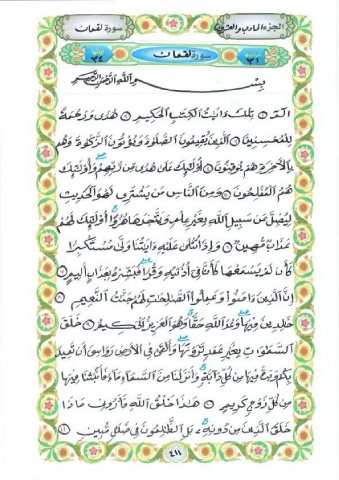 الجزء الحادي والعشرون
سورة لقمان
سورة لقمان
٣١
٣٤
بِسْمِ اللَّهِ الرَّحْمَٰنِ الرَّحِيمِ
الٓمٓ ① تِلْكَ ءَايَٰتُ الْكِتَٰبِ الْحَكِيمِ ② هُدًى وَرَحْمَةً
لِّلْمُحْسِنِينَ ③ الَّذِينَ يُقِيمُونَ الصَّلَوٰةَ وَيُؤْتُونَ الزَّكَوٰةَ وَهُم
بِالْءَاخِرَةِ هُمْ يُوقِنُونَ ④ أُولَٰئِكَ عَلَىٰ هُدًى مِّن رَّبِّهِمْ وَأُولَٰئِكَ
هُمُ الْمُفْلِحُونَ ⑤ وَمِنَ النَّاسِ مَن يَشْتَرِي لَهْوَ الْحَدِيثِ
لِيُضِلَّ عَن سَبِيلِ اللَّهِ بِغَيْرِ عِلْمٍ وَيَتَّخِذَهَا هُزُوًا أُولَٰئِكَ لَهُمْ
عَذَابٌ مُّهِينٌ ⑥ وَإِذَا تُتْلَىٰ عَلَيْهِ ءَايَٰتُنَا وَلَّىٰ مُسْتَكْبِرًا
كَأَن لَّمْ يَسْمَعْهَا كَأَنَّ فِي أُذُنَيْهِ وَقْرًا فَبَشِّرْهُ بِعَذَابٍ أَلِيمٍ ⑦
إِنَّ الَّذِينَ ءَامَنُوا وَعَمِلُوا الصَّٰلِحَٰتِ لَهُمْ جَنَّٰتُ النَّعِيمِ ⑧
خَٰلِدِينَ فِيهَا وَعْدَ اللَّهِ حَقًّا وَهُوَ الْعَزِيزُ الْحَكِيمُ ⑨ خَلَقَ
السَّمَٰوَٰتِ بِغَيْرِ عَمَدٍ تَرَوْنَهَا وَأَلْقَىٰ فِي الْأَرْضِ رَوَٰسِيَ أَن تَمِيدَ
بِكُمْ وَبَثَّ فِيهَا مِن كُلِّ دَابَّةٍ وَأَنزَلْنَا مِنَ السَّمَاءِ مَاءً فَأَنبَتْنَا فِيهَا
مِن كُلِّ زَوْجٍ كَرِيمٍ ⑩ هَٰذَا خَلْقُ اللَّهِ فَأَرُونِي مَاذَا
خَلَقَ الَّذِينَ مِن دُونِهِ بَلِ الظَّٰلِمُونَ فِي ضَلَٰلٍ مُّبِينٍ ⑪
٤١١